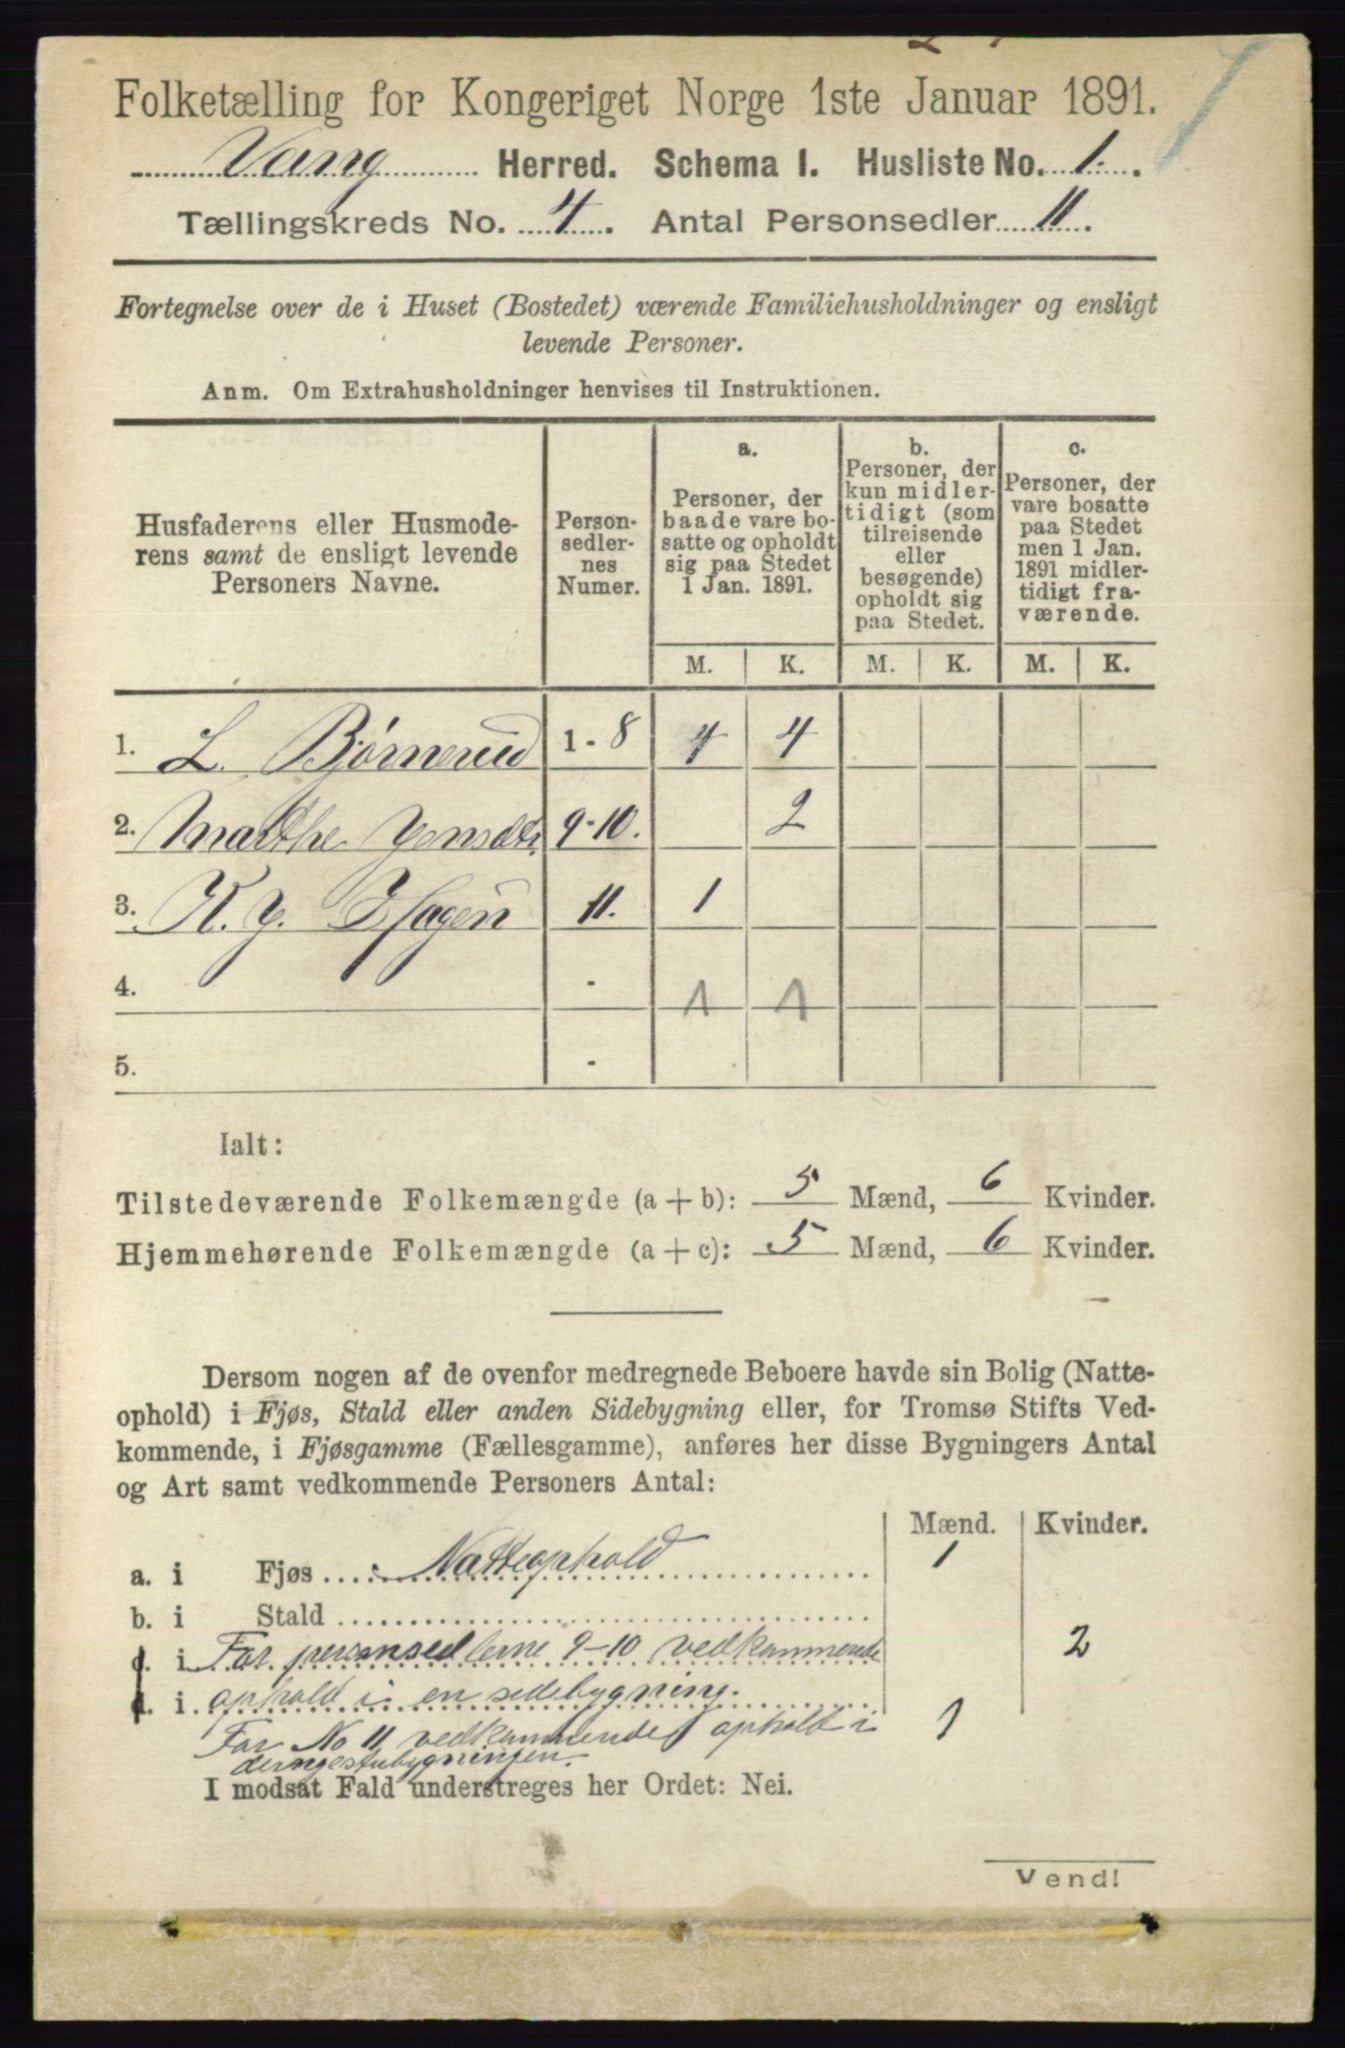 Folketælling for Kongeriget Norge 1ste Januar 1891.
Vang Herred. Schema I. Husliste No. 1.
Tællingskreds No. 4. Antal Personsedler 11.
Fortegnelse over de i Huset (Bostedet) værende Familiehusholdninger og ensligt
levende Personer.
Anm. Om Extrahusholdninger henvises til Instruktionen.
Husfaderens eller Husmode-
rens samt de ensligt levende
Personers Navne.
Person-
sedler-
nes
Numer.
a.
Personer, der
baade vare bo-
satte og opholdt
sig paa Stedet
1 Jan. 1891.
b.
Personer, der
kun midler-
tidigt (som
tilreisende
eller
besøgende)
opholdt sig
paa Stedet.
c.
Personer, der
vare bosatte
paa Stedet
men 1 Jan.
1891 midler-
tidigt fra-
værende.
M. K. M. K. M. K.
1. L. Bjørnerud 1-8 4 4
2. Marthe Jensdt. 9-10. 2
3. K. J. Hagen 11. 1
4. - 1 1
5. -
Ialt:
Tilstedeværende Folkemængde (a + b): 5 Mænd, 6 Kvinder.
Hjemmehørende Folkemængde (a + c): 5 Mænd, 6 Kvinder.
Dersom nogen af de ovenfor medregnede Beboere havde sin Bolig (Natte-
ophold) i Fjøs, Stald eller anden Sidebygning eller, for Tromsø Stifts Ved-
kommende, i Fjøsgamme (Fællesgamme), anføres her disse Bygningers Antal
og Art samt vedkommende Personers Antal:
Mænd. Kvinder.
a. i Fjøs Natteophold 1
b. i Stald
c. i For personsedlerne 9-10 vedkommende 2
d. i ophold i en sidebygning.
For No 11 vedkommende ophold i 1
I modsat Fald understreges her Ordet: Nei.
Vend!